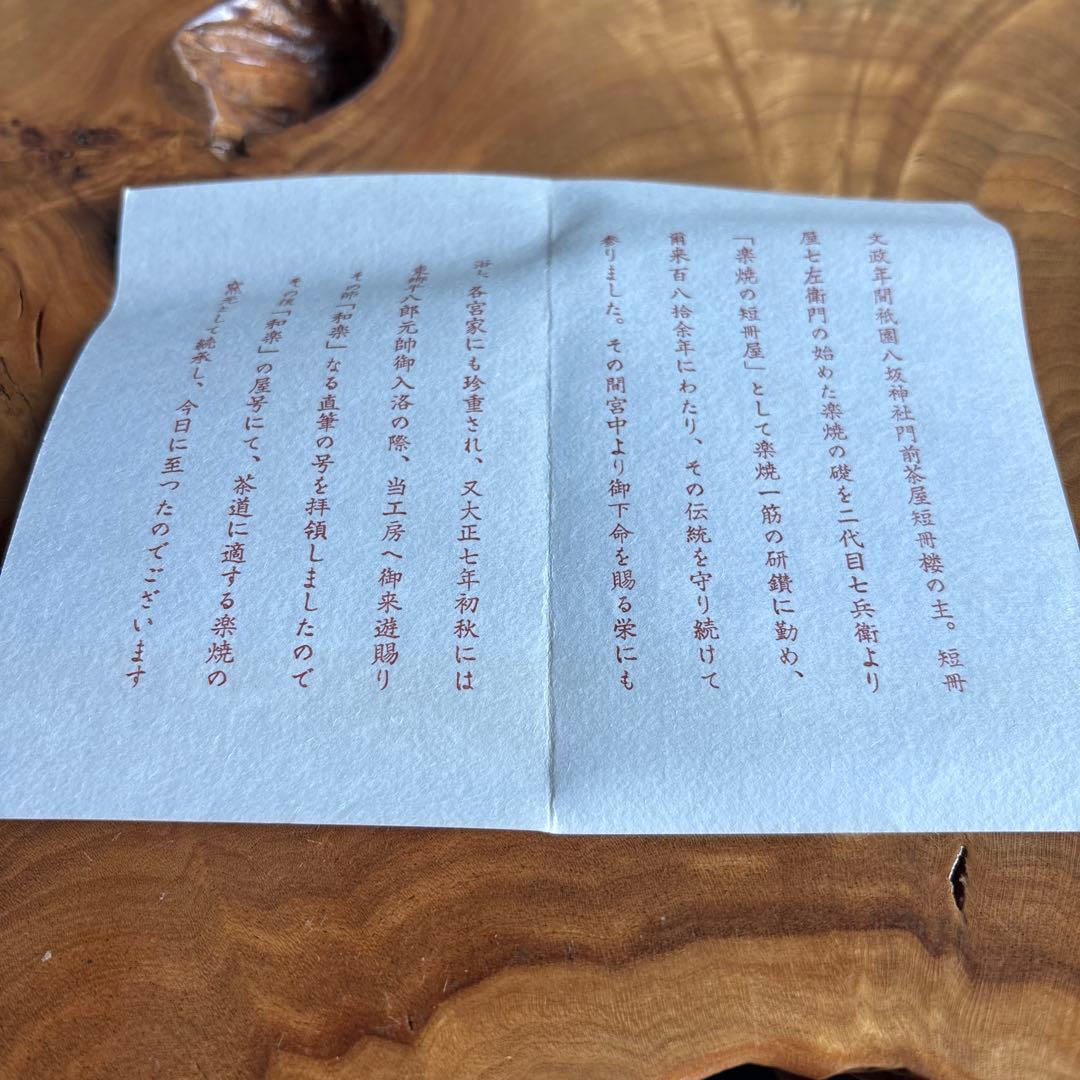 文政年間祇園八坂神社門前茶屋短冊楼の主。短冊
屋七左衛門の始めた楽焼の礎を二代目七兵衛より
「楽焼の短冊屋」として楽焼一筋の研鑽に勤め、
爾来百八拾余年にわたり、その伝統を守り続けて
参りました。その間宮中より御下命を賜る栄にも
浴し、各宮家にも珍重され、又大正七年初秋には
東郷平八郎元帥御入洛の際、当工房へ御来遊賜り
その節「和楽」なる直筆の号を拝領しましたので
その後「和楽」の屋号にて、茶道に適する楽焼の
窯元として続承し、今日に至つたのでございます